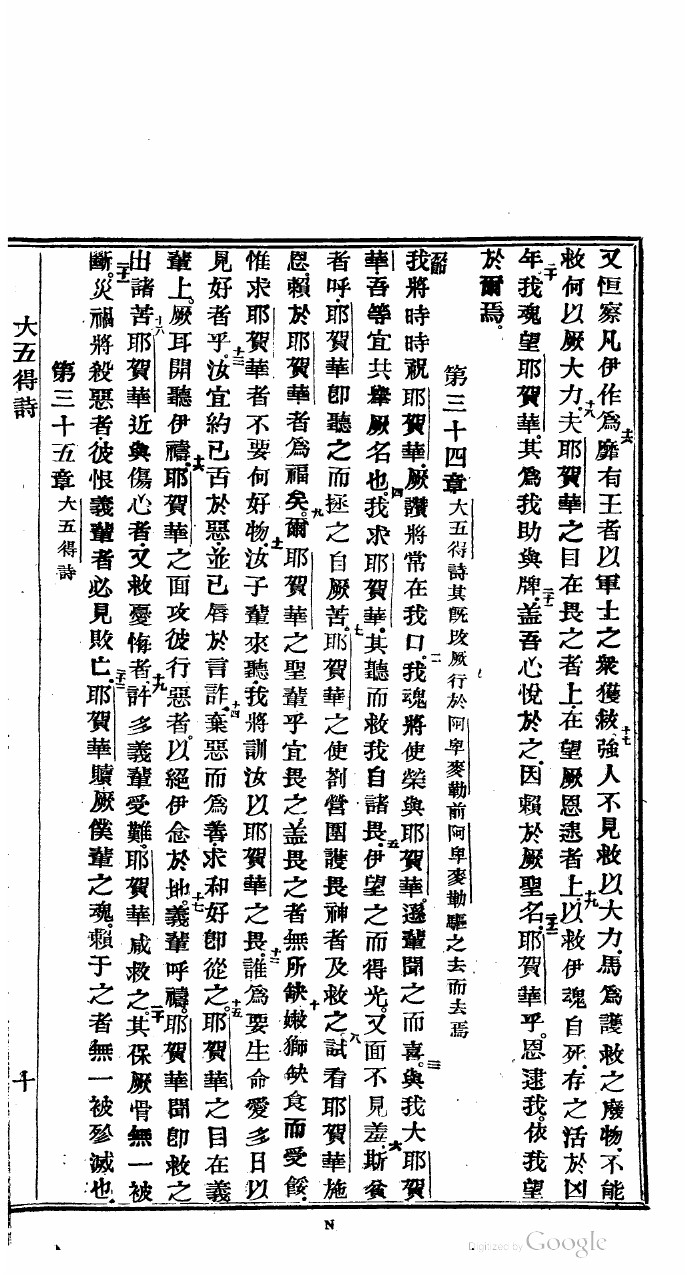 又恒察凡伊作爲靡有王者以軍士之衆獲救強人不見救以大力馬爲護救之廢物不能
救何以厥大力夫耶賀華之目在畏之者上在望厥恩逮者上以救伊魂自死存之活於凶
年我魂望耶賀華其爲我助與牌蓋吾心悅於之因賴於厥聖名耶賀華乎恩逮我依我望
於爾焉
第三十四章 大五得詩其旣攺厥行於阿卑麥勒前阿卑麥勒驅之去而去焉
我將時時祝耶賀華厥讚將常在我口我魂將使榮與耶賀華遜輩聞之而喜與我大耶賀
華吾等宜共舉厥名也我求耶賀華其聽而救我自諸畏伊望之而得光又面不見羞斯貧
者呼耶賀華卽聽之而拯之自厥苦耶賀華之使劄營圍護畏神者及救之試看耶賀華施
恩賴於耶賀華者爲福矣爾耶賀華之聖輩乎宜畏之蓋畏之者無所缺嫩獅缺食而受餒
惟求耶賀華者不要何好物汝子輩來聽我將訓汝以耶賀華之畏誰爲要生命愛多日以
見好者乎汝宜約己舌於惡並己唇於言詐棄惡而爲善求和好卽從之耶賀華之目在義
輩上厥耳開聽伊禱耶賀華之面攻彼行惡者以絕伊念於地義輩呼禱耶賀華聞卽救之
出諸苦耶賀華近與傷心者又救憂悔者許多義輩受難耶賀華咸救之其保厥骨無一被
斷災禍將殺惡者彼恨義輩者必見敗亡耶賀華贖厥僕輩之魂賴于之者無一被殄滅也
第三十五章 大五得詩
大五得詩 十
N
Digitized by Google